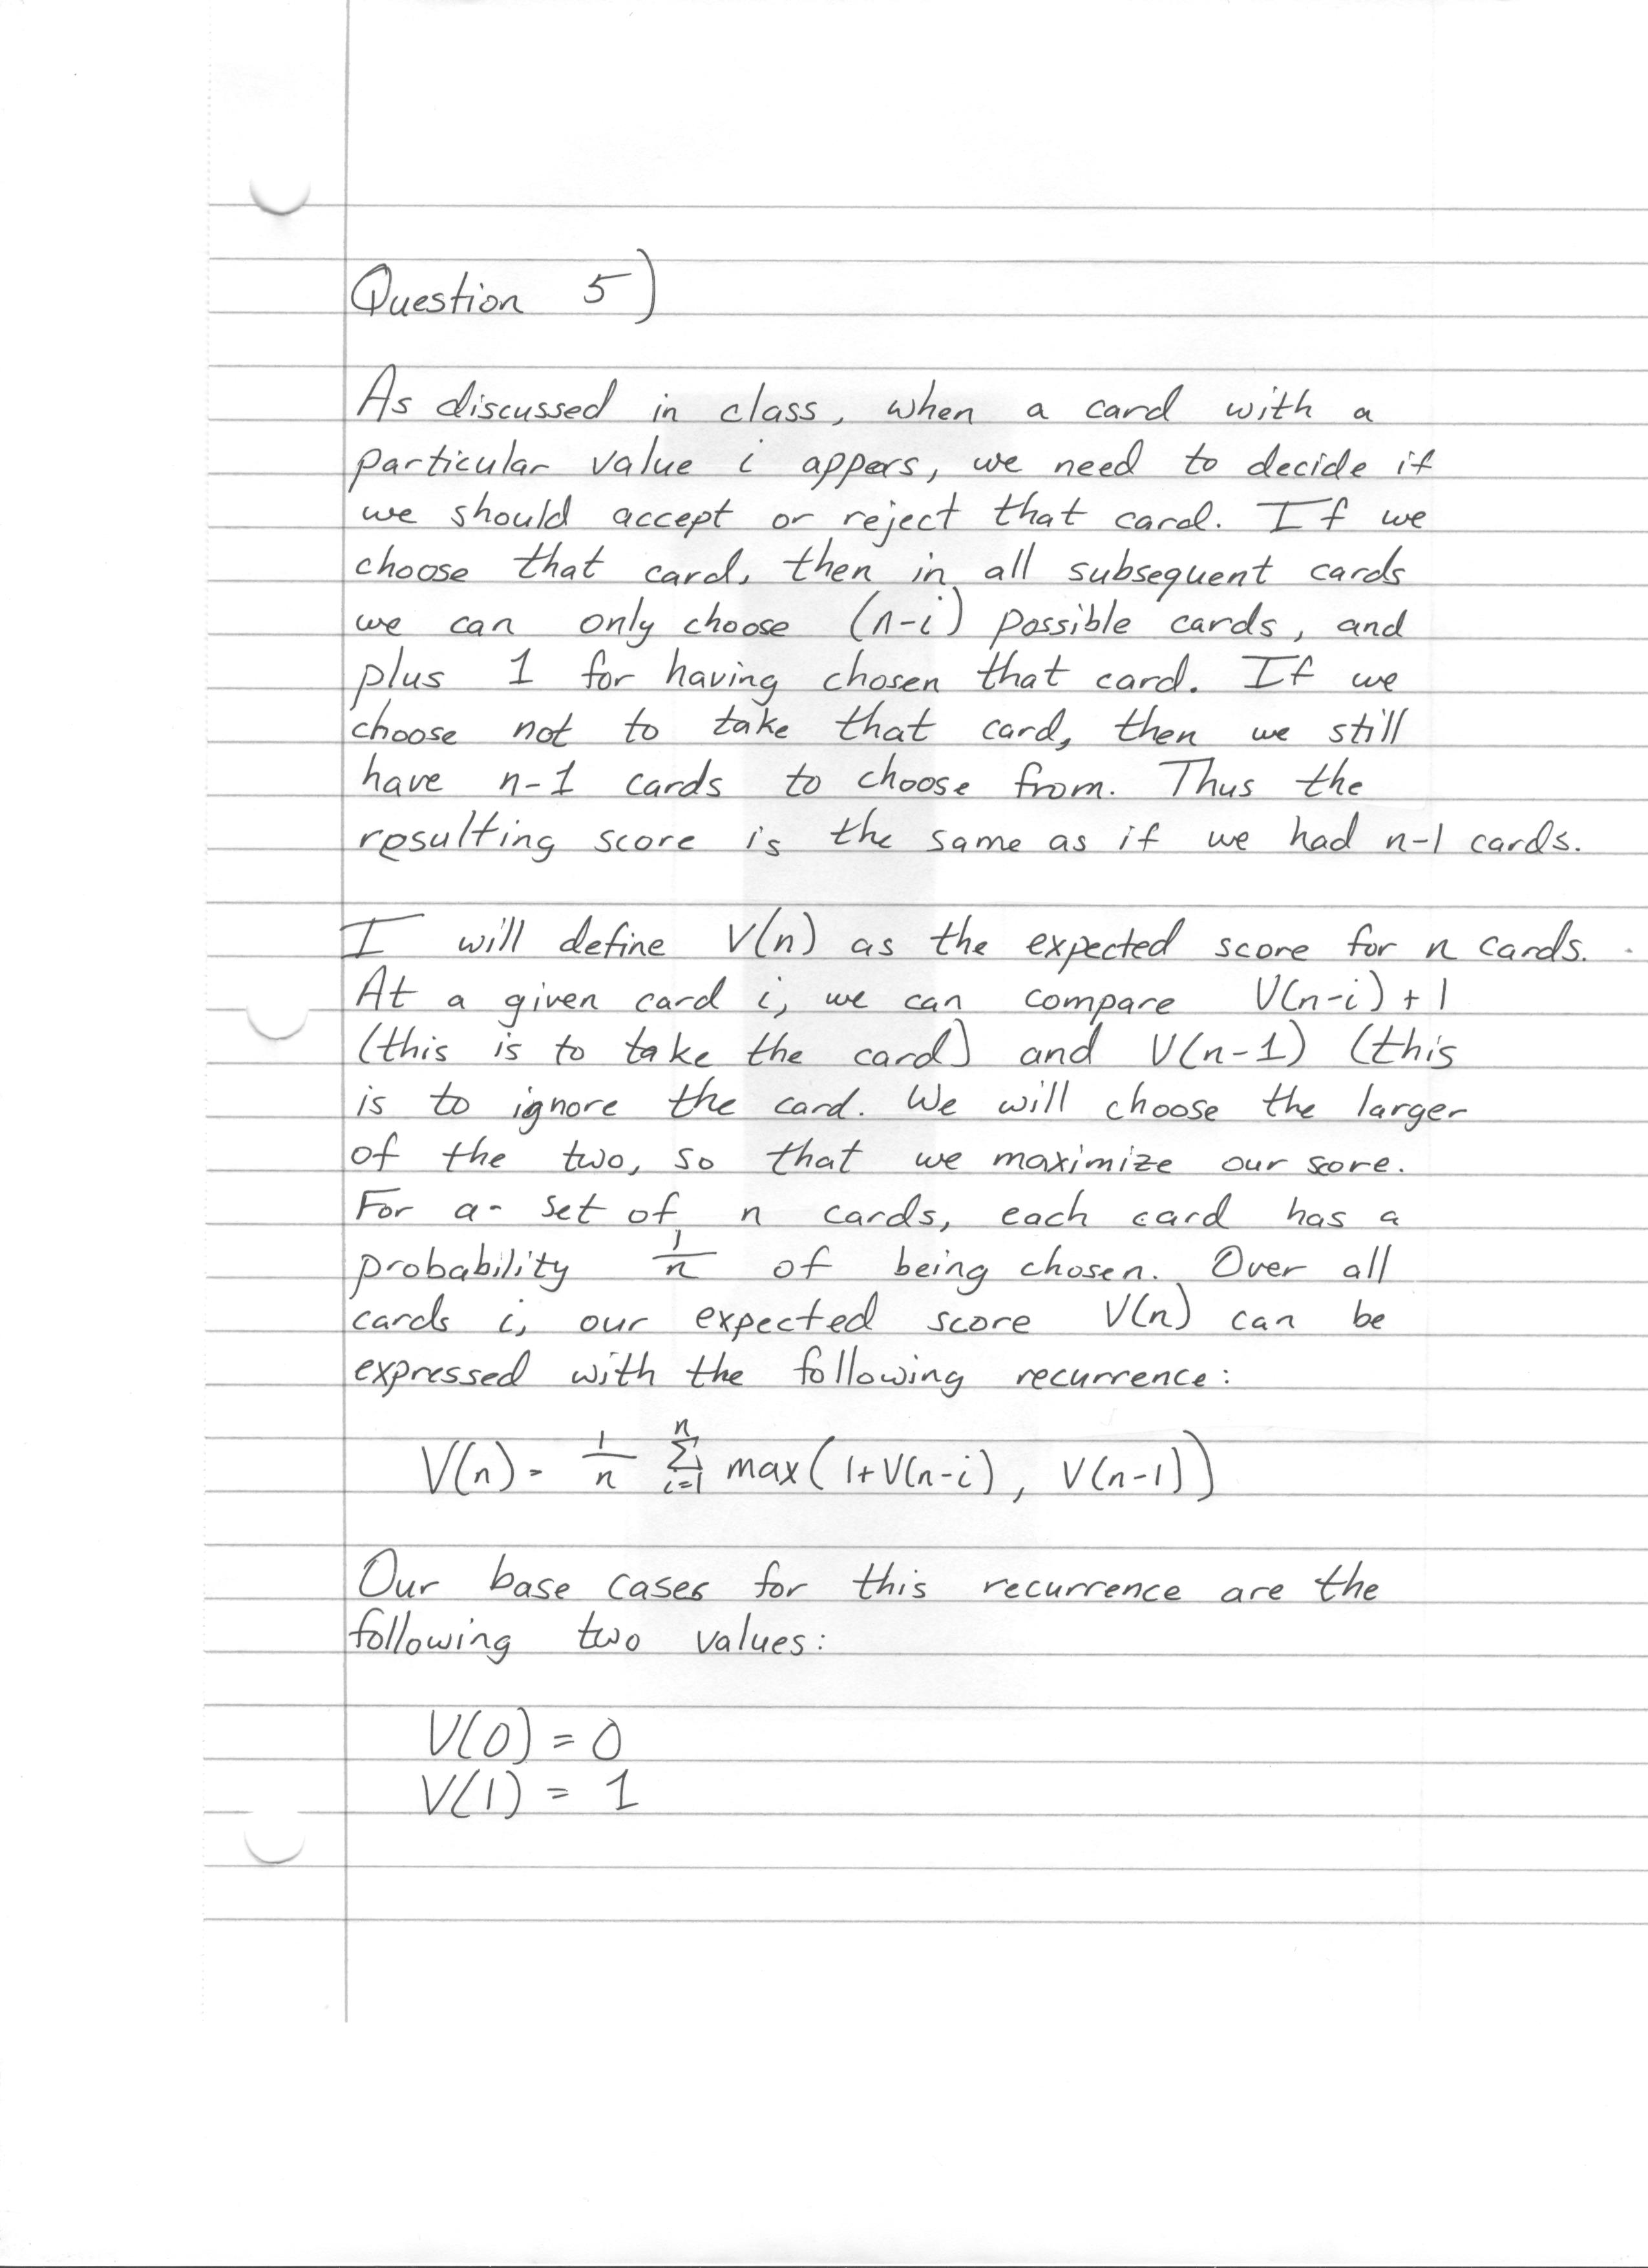 Question 5)
As discussed in class, when a card with a
particular value i appers, we need to decide if
we should accept or reject that card. If we
choose that card, then in all subsequent cards
we can only choose (n-i) possible cards, and
plus 1 for having chosen that card. If we
choose not to take that card, then we still
have n-1 cards to choose from. Thus the
resulting score is the same as if we had n-1 cards.
I will define V(n) as the expected score for n cards.
At a given card i, we can compare V(n-i)+1
(this is to take the card) and V(n-1) (this
is to ignore the card. We will choose the larger
of the two, so that we maximize our score.
For a set of n cards, each card has a
probability 1/n of being chosen. Over all
cards i, our expected score V(n) can be
expressed with the following recurrence:
V(n) = 1/n Σ_{i=1}^{n} max(1+V(n-i), V(n-1))
Our base cases for this recurrence are the
following two values:
V(0) = 0
V(1) = 1